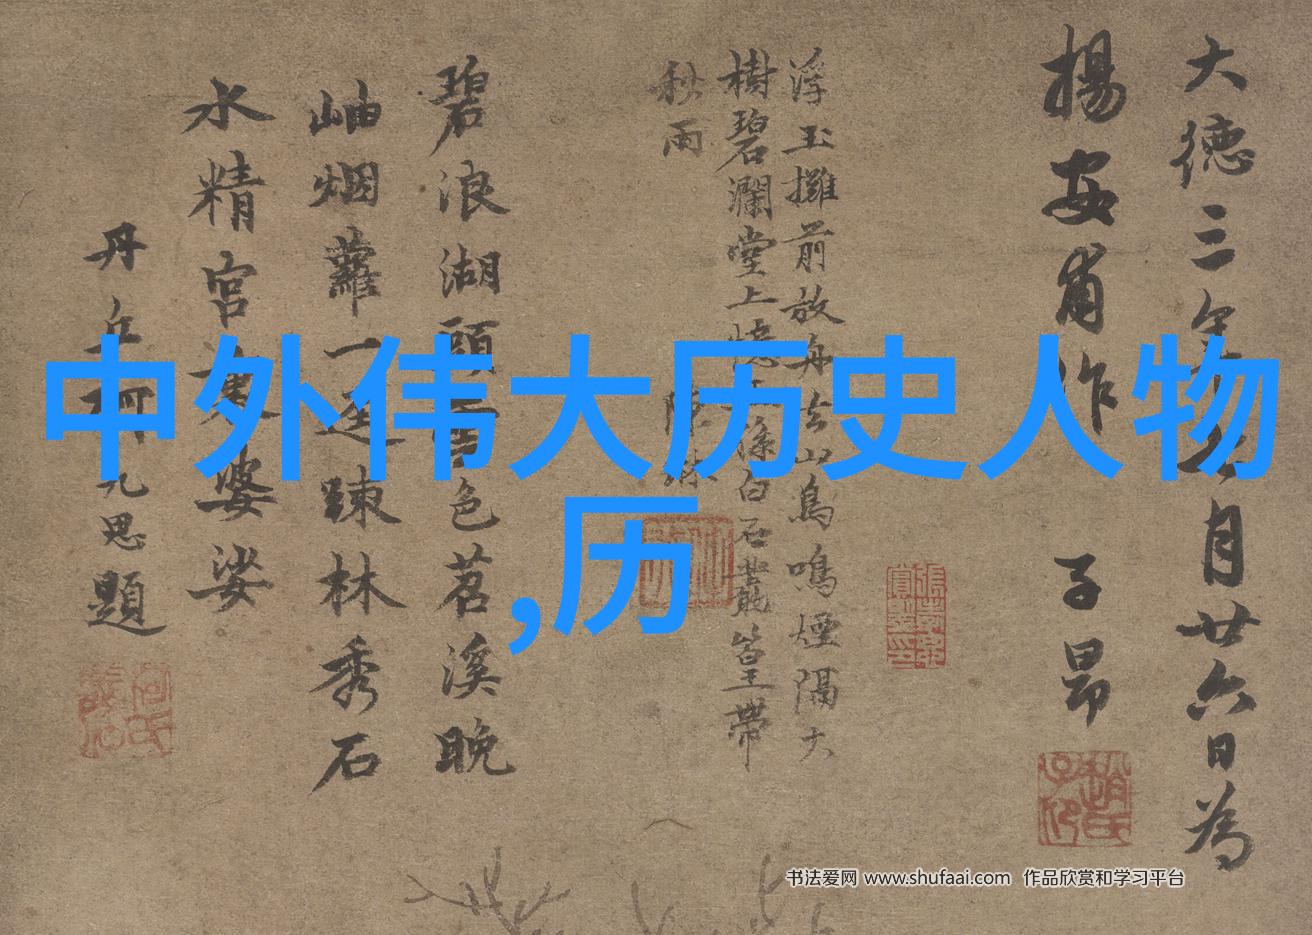 大德三年
月廿六日為
揚安甫作
子昂
浮玉攤前放舟去山鳥鳴煙隔大
樹碧瀾堂上憶
徐白石
篁帶
秋雨
碧浪湖頭
色苕溪晚
岫烟蘿一逕疎林秀石
水精宮
婆娑
丹丘柯九思題
中外伟大历史人物
,历
书法爱网 www.shufaai.com 作品欣赏和学习平台